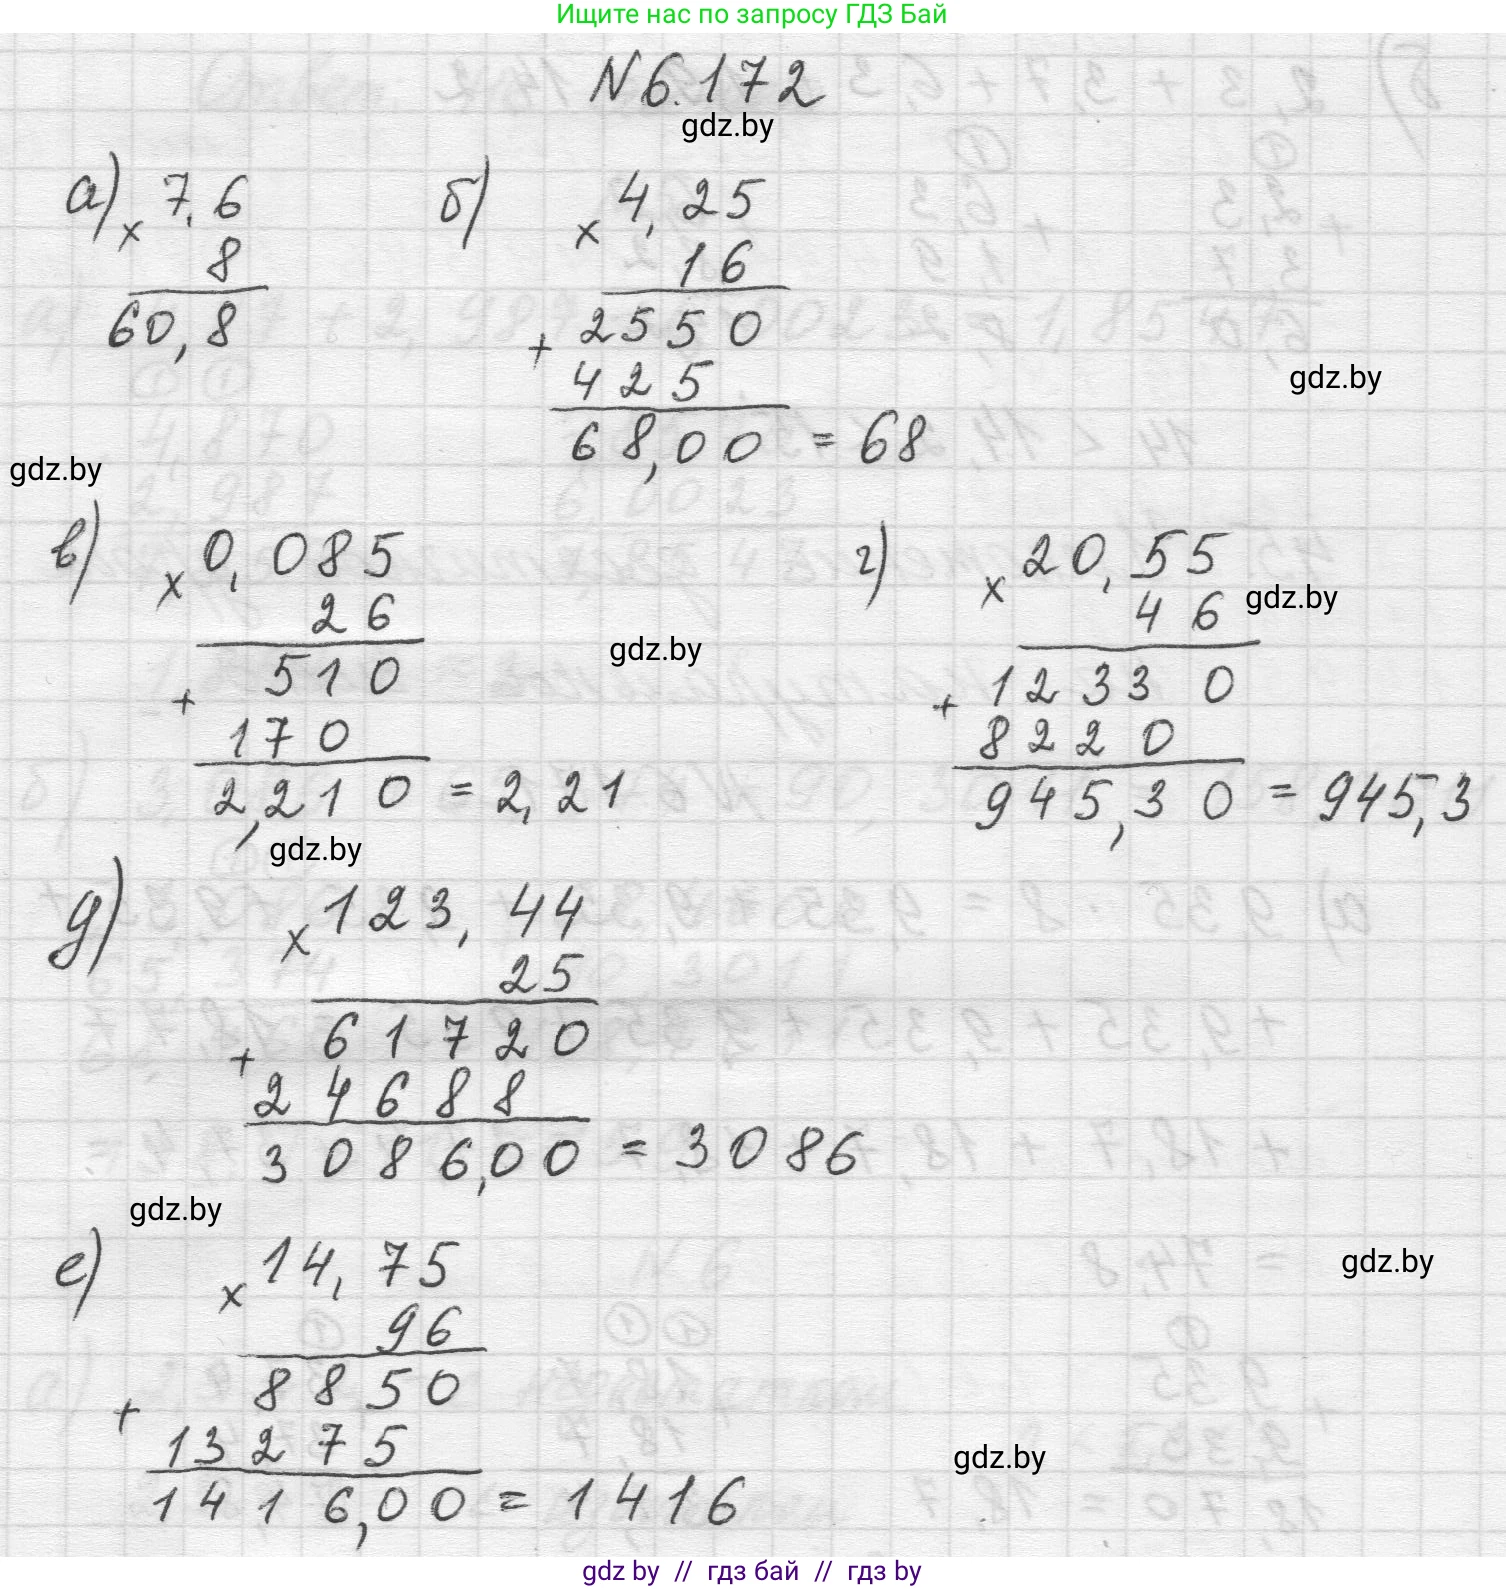 Ищите нас по запросу ГДЗ Бай
N 6.172
gdz.by
а) × 7,6
8
60,8
б) × 4,25
16
+ 2550
425
68,00 = 68
gdz.by
gdz.by
в) × 0,085
26
+ 510
170
2,210 = 2,21
gdz.by
г) × 20,55
46
gdz.by
+ 12330
8220
945,30 = 945,3
gdz.by
д) × 123,44
25
+ 61720
24688
3086,00 = 3086
gdz.by
е) × 14,75
96
+ 8850
13275
1416,00 = 1416
gdz.by
gdz.by
gdz by // гдз бай // гдз by